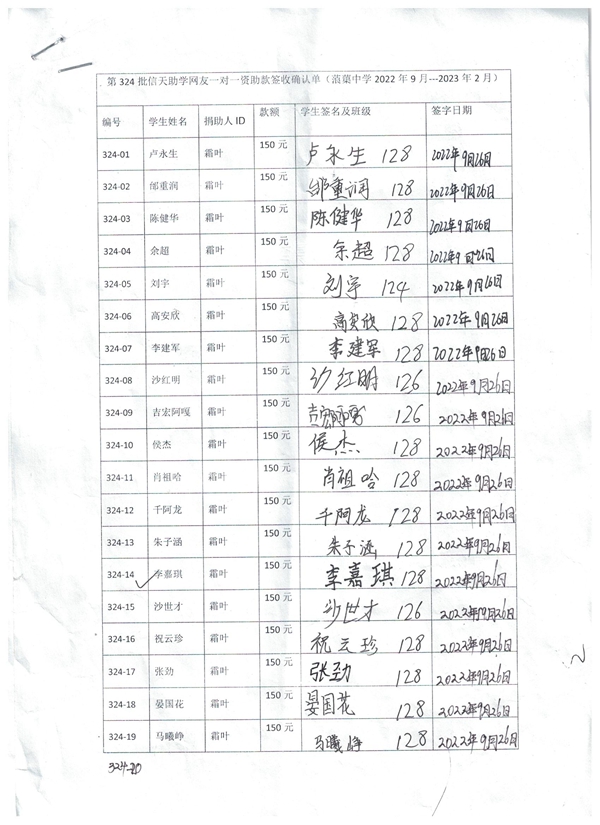 第 324 批信天助学网友一对一资助款签收确认单（菹菜中学 2022 年 9 月---2023 年 2 月）
编号 学生姓名 捐助人 ID 款额 学生签名及班级 签字日期
324-01 卢永生 霜叶 150 元 卢永生 128 2022年9月26日
324-02 邰重润 霜叶 150 元 邰重润 128 2022年9月26日
324-03 陈健华 霜叶 150 元 陈健华 128 2022年9月26日
324-04 余超 霜叶 150 元 余超 128 2022年9月26日
324-05 刘宇 霜叶 150 元 刘宇 124 2022年9月26日
324-06 高安欣 霜叶 150 元 高安欣 128 2022年9月26日
324-07 李建军 霜叶 150 元 李建军 128 2022年9月26日
324-08 沙红明 霜叶 150 元 沙红明 126 2022年9月26日
324-09 吉宏阿嘎 霜叶 150 元 吉宏阿嘎 126 2022年9月26日
324-10 侯杰 霜叶 150 元 侯杰 128 2022年9月26日
324-11 肖祖哈 霜叶 150 元 肖祖哈 128 2022年9月26日
324-12 千阿龙 霜叶 150 元 千阿龙 128 2022年9月26日
324-13 朱子涵 霜叶 150 元 朱子涵 128 2022年9月26日
324-14 李嘉琪 霜叶 150 元 李嘉琪 128 2022年9月26日
324-15 沙世才 霜叶 150 元 沙世才 126 2022年9月26日
324-16 祝云珍 霜叶 150 元 祝云珍 128 2022年9月26日
324-17 张劲 霜叶 150 元 张劲 128 2022年9月26日
324-18 晏国花 霜叶 150 元 晏国花 128 2022年9月26日
324-19 马曦峥 霜叶 150 元 马曦峥 128 2022年9月26日
324-20